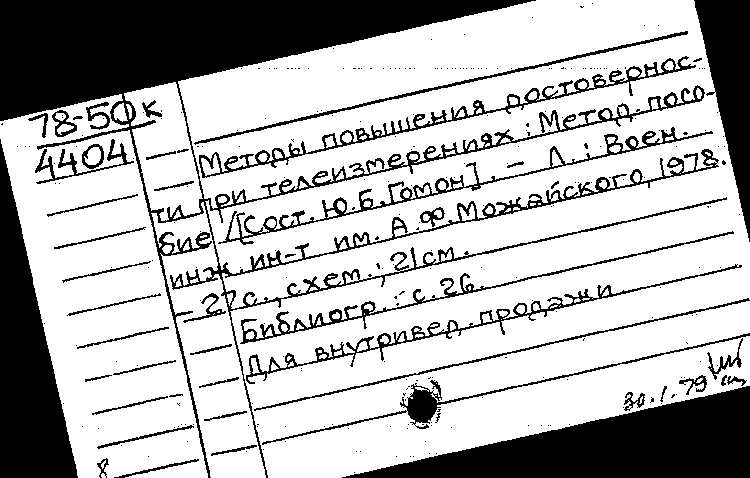 78-50к
4404
Методы повышения достовернос-
ти при телеизмерениях : Метод. посо-
бие /[Сост. Ю.Б.Гомон]. - Л. : Воен.
инж. ин-т им. А.Ф.Можайского, 1978.
- 27 с., схем.; 21 см.
Библиогр.: с. 26.
Для внутривед. продажи
30.1.79
8